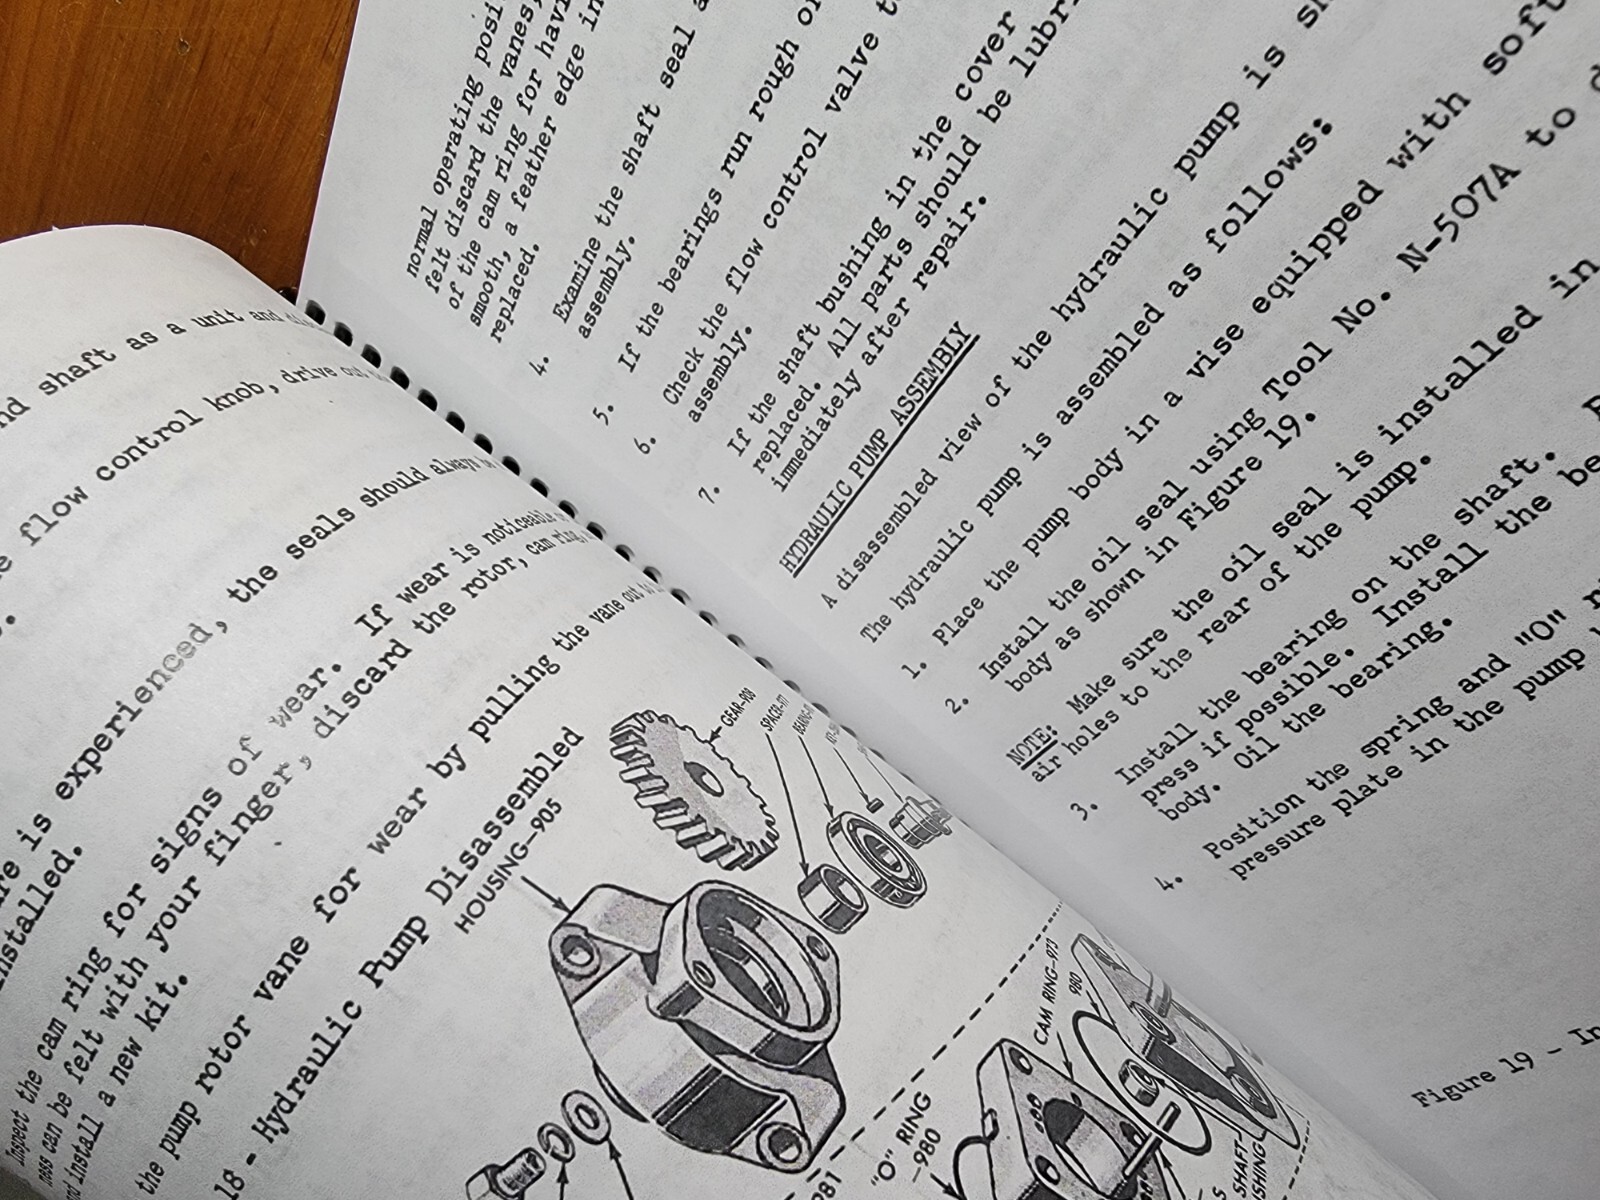 nd shaft as a unit and
flow control knob, drive out
is experienced, the seals should always be
installed.
Inspect the cam ring for signs of wear. If wear is noticeable
ness can be felt with your finger, discard the rotor, cam ring,
and install a new kit.
the pump rotor vane for wear by pulling the vane out
18 - Hydraulic Pump Disassembled
HOUSING-905
GEAR-908
SPACER-917
CAM RING-973
980
"O" RING
-980
981
SHAFT-
normal operating posi
felt discard the vanes,
of the cam ring for havi
smooth, a feather edge in
replaced.
4. Examine the shaft seal a
assembly.
5. If the bearings run rough or
6. Check the flow control valve t
assembly.
7. If the shaft bushing in the cover
replaced. All parts should be lubri
immediately after repair.
HYDRAULIC PUMP ASSEMBLY
A disassembled view of the hydraulic pump is sh
The hydraulic pump is assembled as follows:
1. Place the pump body in a vise equipped with soft
2. Install the oil seal using Tool No. N-507A to d
body as shown in Figure 19.
NOTE: Make sure the oil seal is installed in
air holes to the rear of the pump.
3. Install the bearing on the shaft.
press if possible. Install the be
body. Oil the bearing.
4. Position the spring and "O" r
pressure plate in the pump
Figure 19 - In